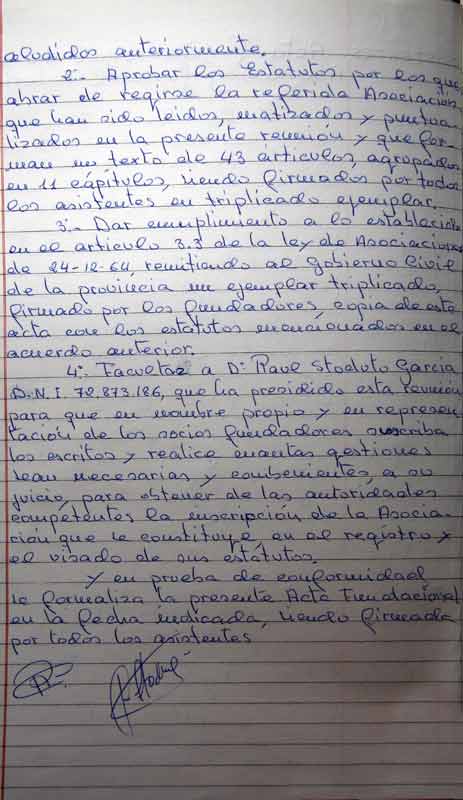 aludidos anteriormente.
2:- Aprobar los Estatutos por los que
abrar de regirse la referida Asociación,
que han sido leidos, matizados y puntua-
lizados en la presente reunión y que for-
man un texto de 43 árticulos, agrupados
en 11 cápitulos, siendo firmados por todos
los asistentes en triplicado ejemplar.
3:- Dar cumplimiento a lo establecido
en el articulo 3.3 de la ley de Asociaciones
de 24-12-64, remitiendo al Gobierno Civil
de la provincia un ejemplar triplicado,
firmado por los fundadores, copia de este
acta con los estatutos mencionados en el
acuerdo anterior.
4:- Facultar a D: Stoduto Garcia
D.N.I 72.873.186, que ha presidido esta reunión
para que en nombre propio y en represen-
tación de los socios fundadores suscriba
los escritos y realice cuantas gestiones
sean necesarias y combenientes, a su
juicio, para obtener de las autoridades
compétentes la inscripción de la Asocia-
ción que se constituye, en el registro y
el visado de sus estátutos.
y en prueba de conformidad
se formaliza la presente Acta Fundacional
en la fecha indicada, siendo firmada
por todos los asistentes